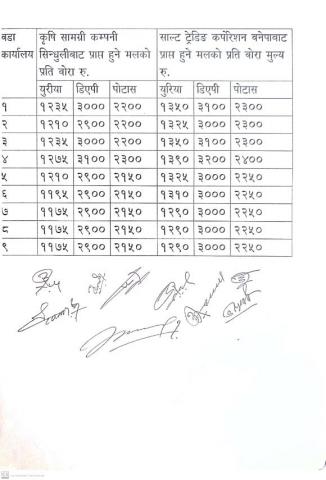 वडा कार्यालय | कृषि सामग्री कम्पनी सिन्धुलीबाट प्राप्त हुने मलको प्रति बोरा रु. | साल्ट ट्रेडिङ कर्पोरेशन बनेपाबाट प्राप्त हुने मलको प्रति बोरा मुल्य रु.
युरीया | डिएपी | पोटास | युरिया | डिएपी | पोटास
१ | १२३५ | ३००० | २२०० | १३५० | ३१०० | २३००
२ | १२१० | २९०० | २२०० | १३२५ | ३००० | २३००
३ | १२३५ | ३००० | २२०० | १३५० | ३१०० | २३००
४ | १२७५ | ३१०० | २३०० | १३९० | ३२०० | २४००
५ | १२१० | २९०० | २१५० | १३२५ | ३००० | २२५०
६ | ११९५ | २९०० | २१५० | १३१० | ३००० | २२५०
७ | ११७५ | २९०० | २१५० | १२९० | ३००० | २२५०
८ | ११७५ | २९०० | २१५० | १२९० | ३००० | २२५०
९ | ११७५ | २९०० | २१५० | १२९० | ३००० | २२५०